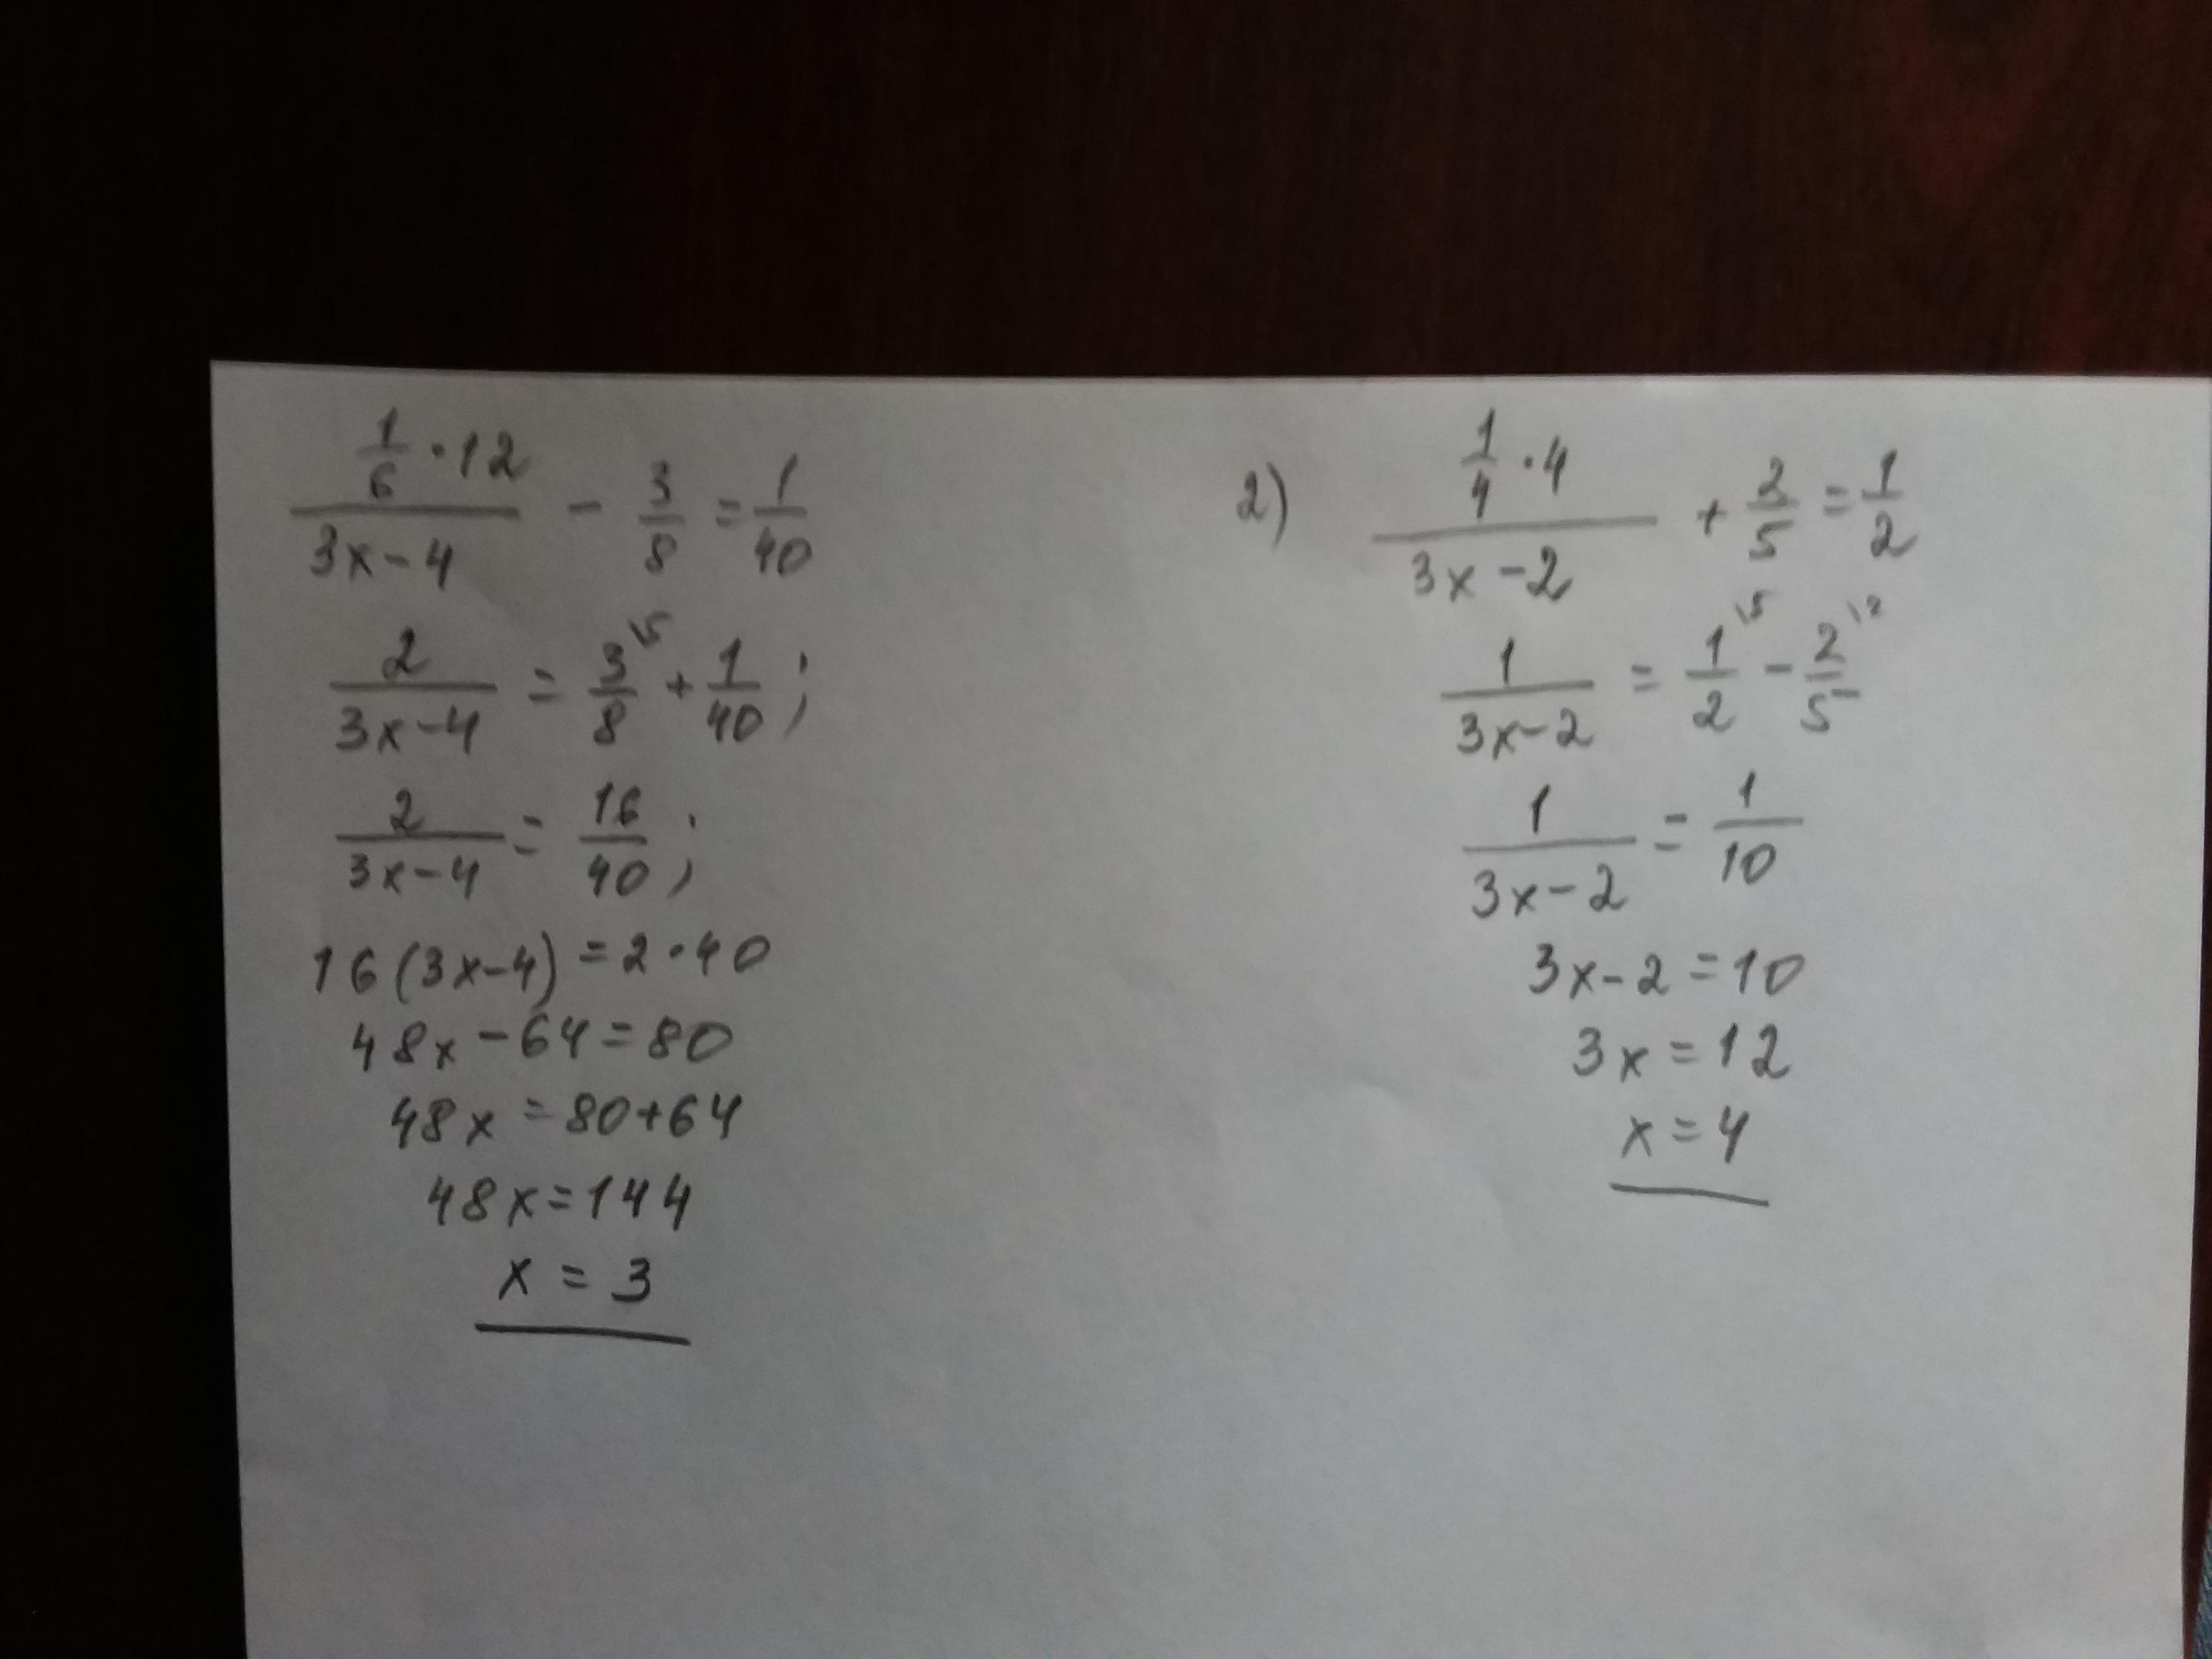 \frac{\frac{1}{6} \cdot 12}{3x-4} - \frac{3}{8} = \frac{1}{40}
\frac{2}{3x-4} = \frac{3}{8}^{\backslash 5} + \frac{1}{40};
\frac{2}{3x-4} = \frac{16}{40};
16(3x-4) = 2 \cdot 40
48x - 64 = 80
48x = 80+64
48x = 144
x = 3
2) \frac{\frac{1}{4} \cdot 4}{3x-2} + \frac{2}{5} = \frac{1}{2}
\frac{1}{3x-2} = \frac{1}{2}^{\backslash 5} - \frac{2}{5}^{\backslash 2}
\frac{1}{3x-2} = \frac{1}{10}
3x-2 = 10
3x = 12
x = 4